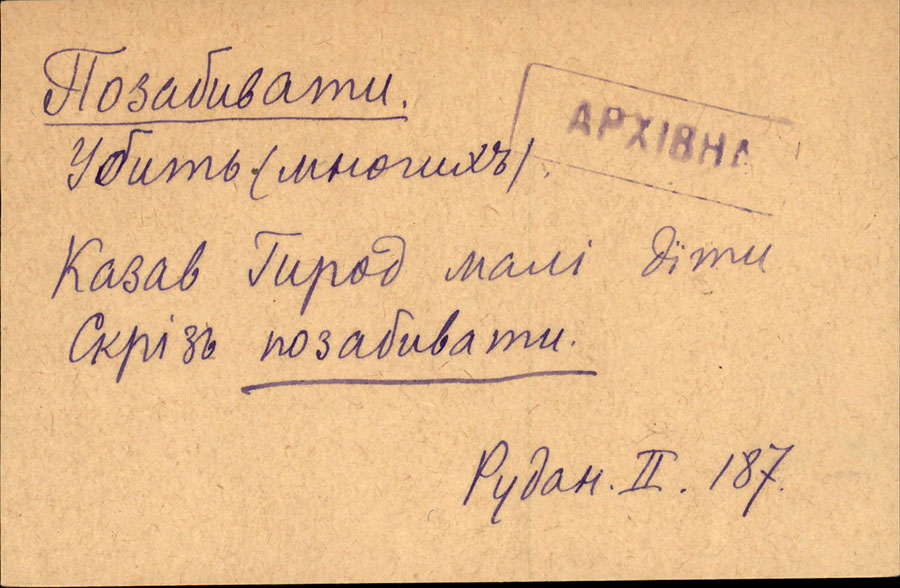 Позабивати.
АРХІВНА
Убить (многихъ).
Казав Гирод малі діти
Скрізь позабивати.
Рудан. II. 187.